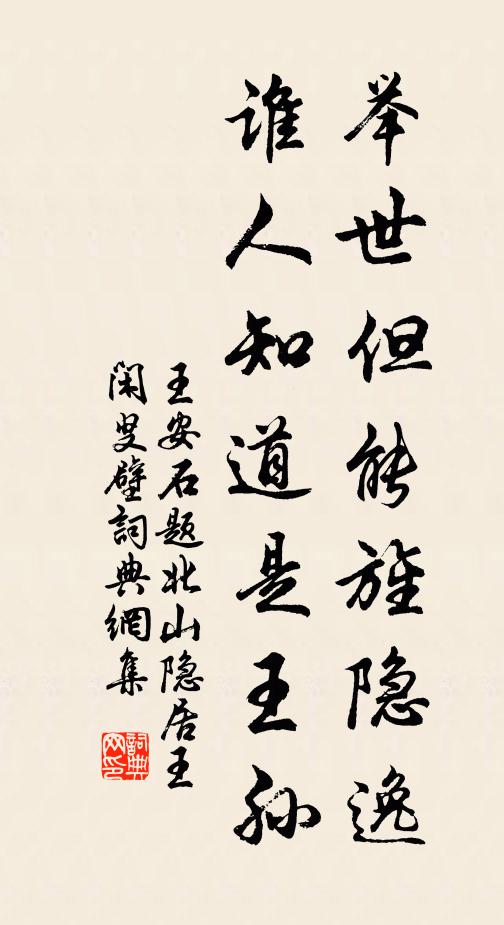 举世但能旌隐逸
谁人知道是王孙
王安石题北山隐居王
闲叟壁詞典網集
詞典网印